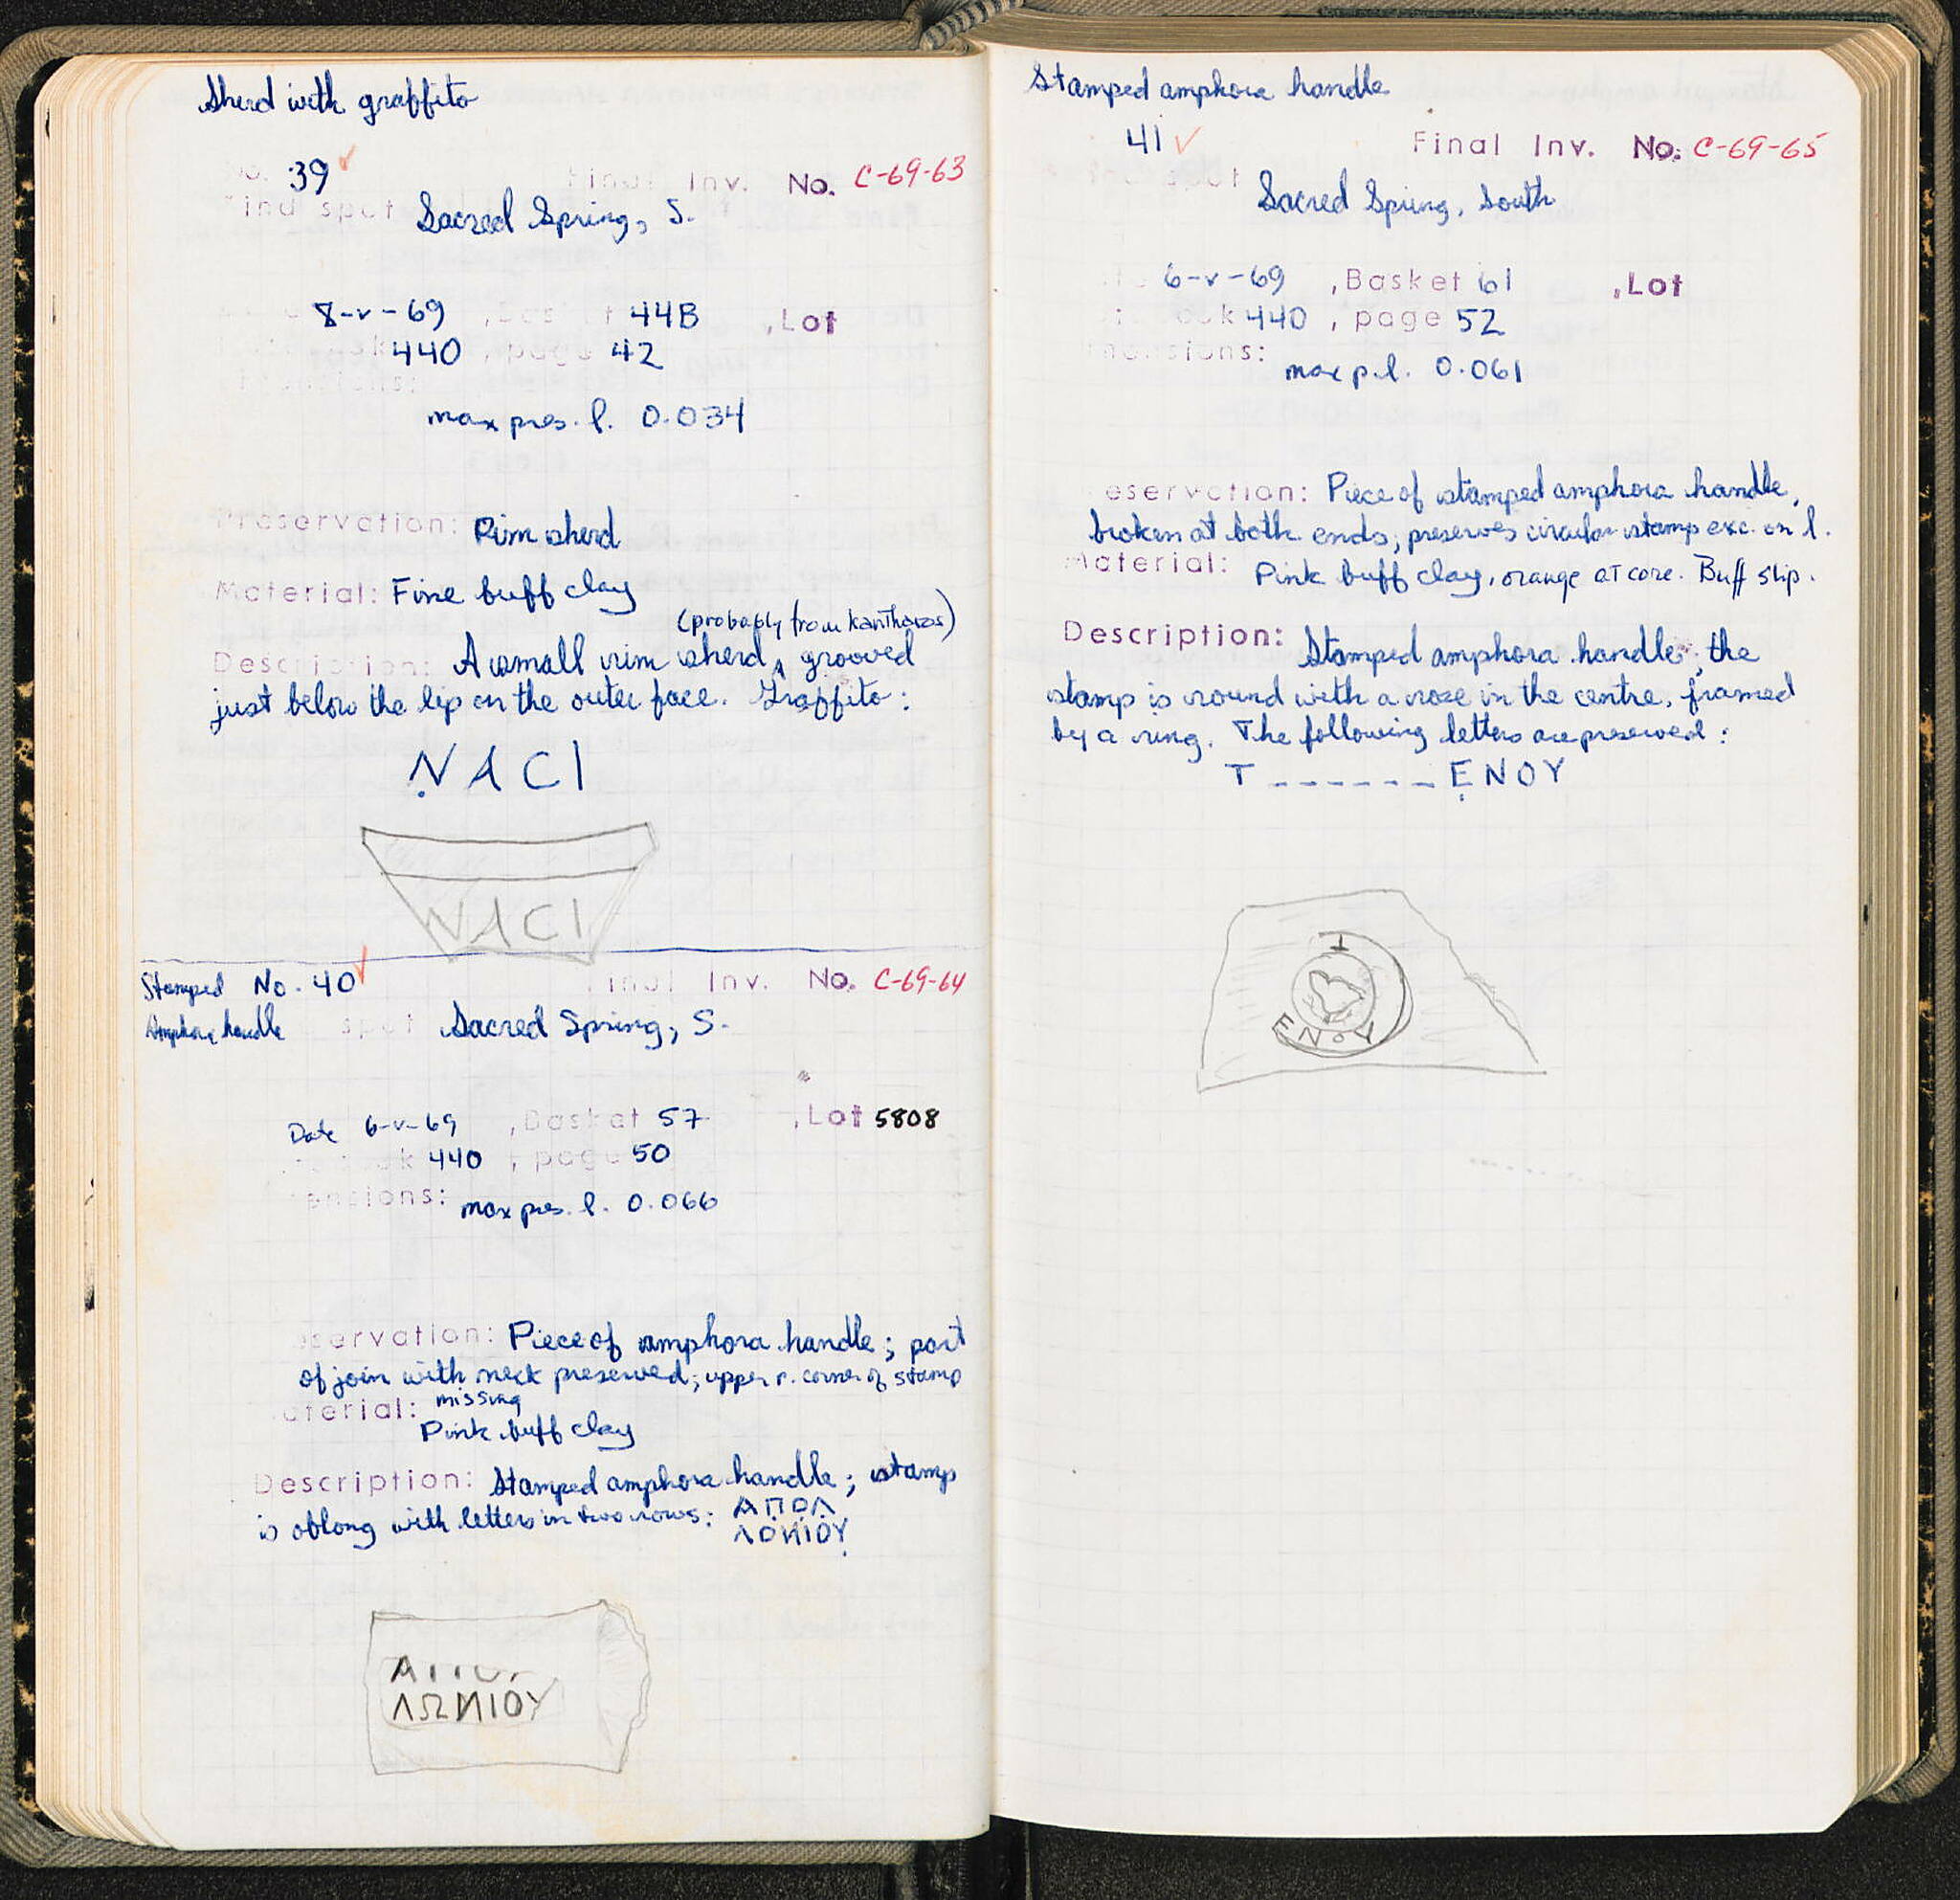 Sherd with graffito
No. 39 Final Inv. No. C-69-63
Find spot Sacred Spring, S.
8-v-69 , Basket 44B , Lot
440 , page 42
max pres. l. 0.034
Preservation: Rim sherd
Material: Fine buff clay
(probably from kantharos)
Description: A small rim sherd, grooved
just below the lip on the outer face. Graffito:
ṆACI
NACI
Stamped No. 40 Final Inv. No. C-69-64
Amphora handle spot Sacred Spring, S.
Date 6-v-69 , Basket 57 , Lot 5808
440 , page 50
ensions: max pres. l. 0.066
servation: Piece of amphora handle; part
of join with neck preserved; upper r. corner of stamp
missing
aterial: Pink buff clay
Description: Stamped amphora handle; stamp
is oblong with letters in two rows: ΑΠΟΛ
ΛΟΝΙΟΥ
ΛΩΝΙΟΥ
Stamped amphora handle
41 Final Inv. No. C-69-65
Sacred Spring, South
6-v-69 , Basket 61 , Lot
k 440 , page 52
mensions:
max p.l. 0.061
eservation: Piece of stamped amphora handle,
broken at both ends; preserves circular stamp exc. on l.
Material: Pink buff clay, orange at core. Buff slip.
Description: Stamped amphora handle; the
stamp is round with a rose in the centre, framed
by a ring. The following letters are preserved:
T ------ ẸNOY
T
ENOY